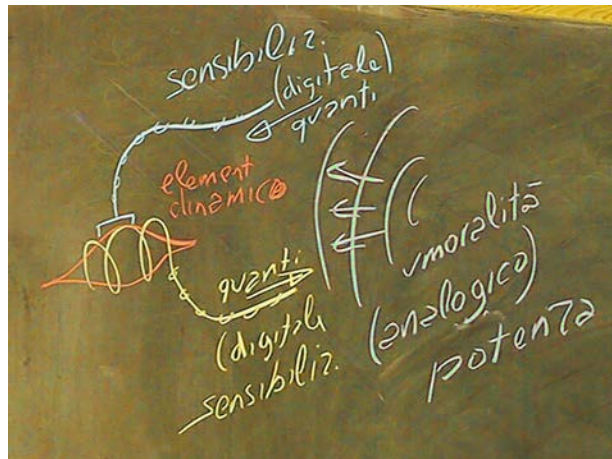 sensibiliz.
(digitale)
quanti
element
dinamico
quanti
(digitale
sensibiliz.
umoralità
(analogico)
potenza